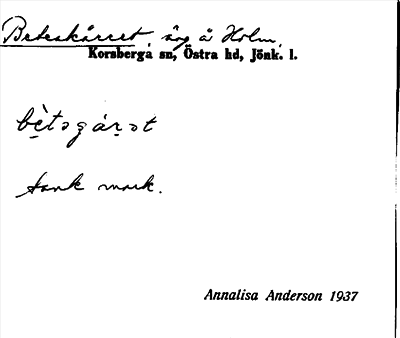 Beteskärret äng å Holm
Korsberga sn, Östra hd, Jönk. l.
sank mark.
Annalisa Anderson 1937